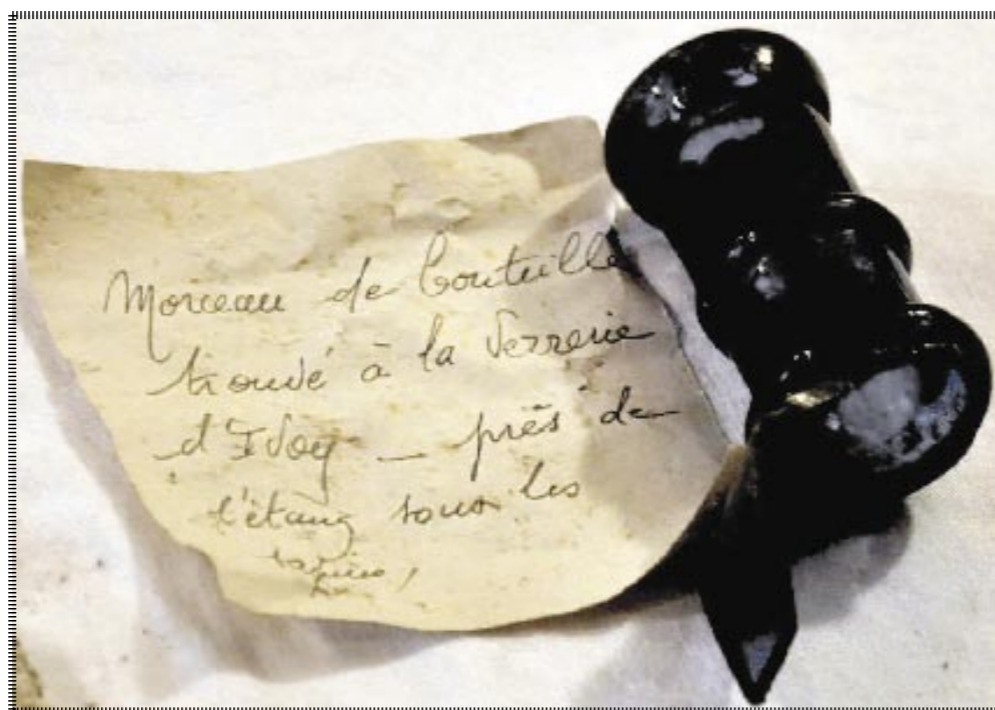 Morceau de bouteille
trouvé à la Verrerie
d'Ivoy — près de
l'étang sous les